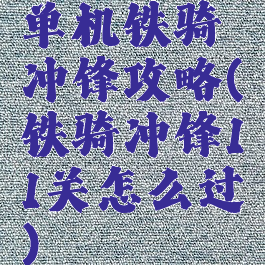 单机铁骑
冲锋攻略(
铁骑冲锋1
1关怎么过
)